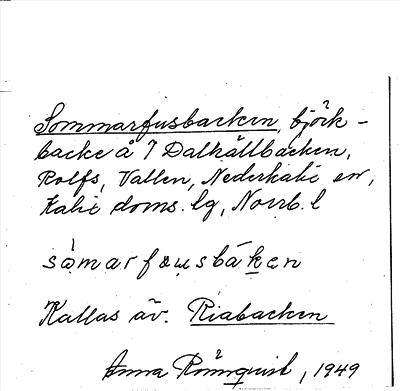 Sommarfusbacken, björk-
backe å 7 Dalkällbacken,
Rolfs, Vallen, Nederkalix sn,
Kalix doms. lg, Norrb. l
sòmarfɷusbákan
Kallas äv. Riabacken
Anna Rönnquist, 1949